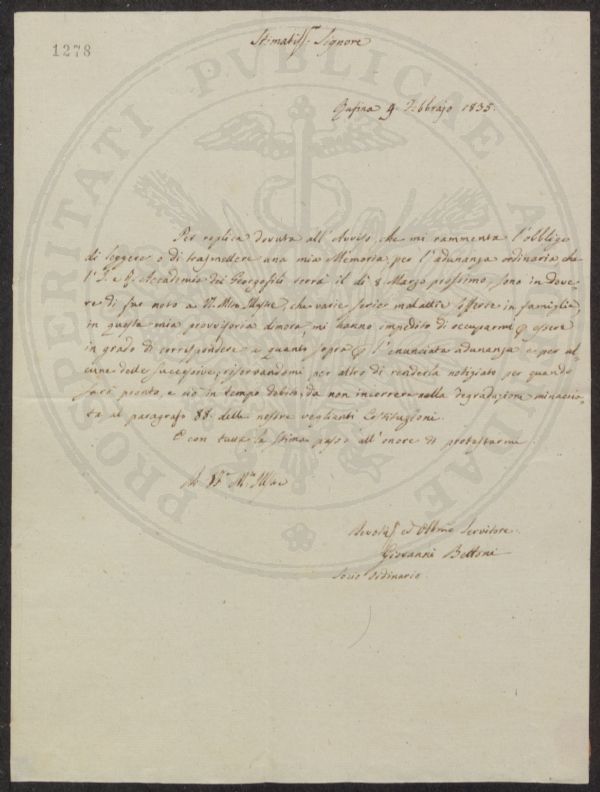 1278
Stimatiss. Signore
Rufina 9 Febbrajo 1835.
Per replica dovuta all'Avviso, che mi rammenta l'obbligo
di leggere o di trasmettere una mia Memoria, per l'adunanza ordinaria che
l'I. e R. Accademia dei Georgofili terrà il dì 8 Marzo prossimo, sono in dove-
re di far noto a che varie serie malattie sofferte in famiglia
in questa mia provvisoria dimora, mi hanno impedito di occuparmi p essere
in grado di corrispondere a quanto sopra p l'enunciata adunanza e per al-
cune delle successive; riservandomi per altro di renderla notiziato per quando
sarò pronto, e ciò in tempo debito, da non incorrere nella degradazione minaccia-
ta al paragrafo 88. delle nostre veglianti Costituzioni.
E con tutta la stima passo all'onore di protestarmi
Devotis ed Obbmo Servitore
Giovanni Bettoni
Socio Ordinario.
PROSPERITATI PVBLICAE AVGENDAE